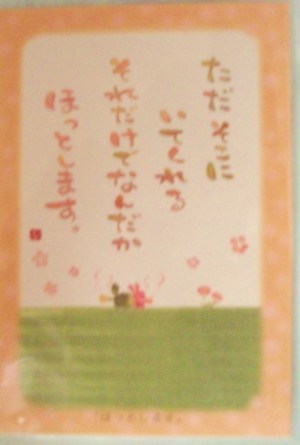 ただそこに
いてくれる
それだけでなんだか
ほっとします。
「ほっとします」